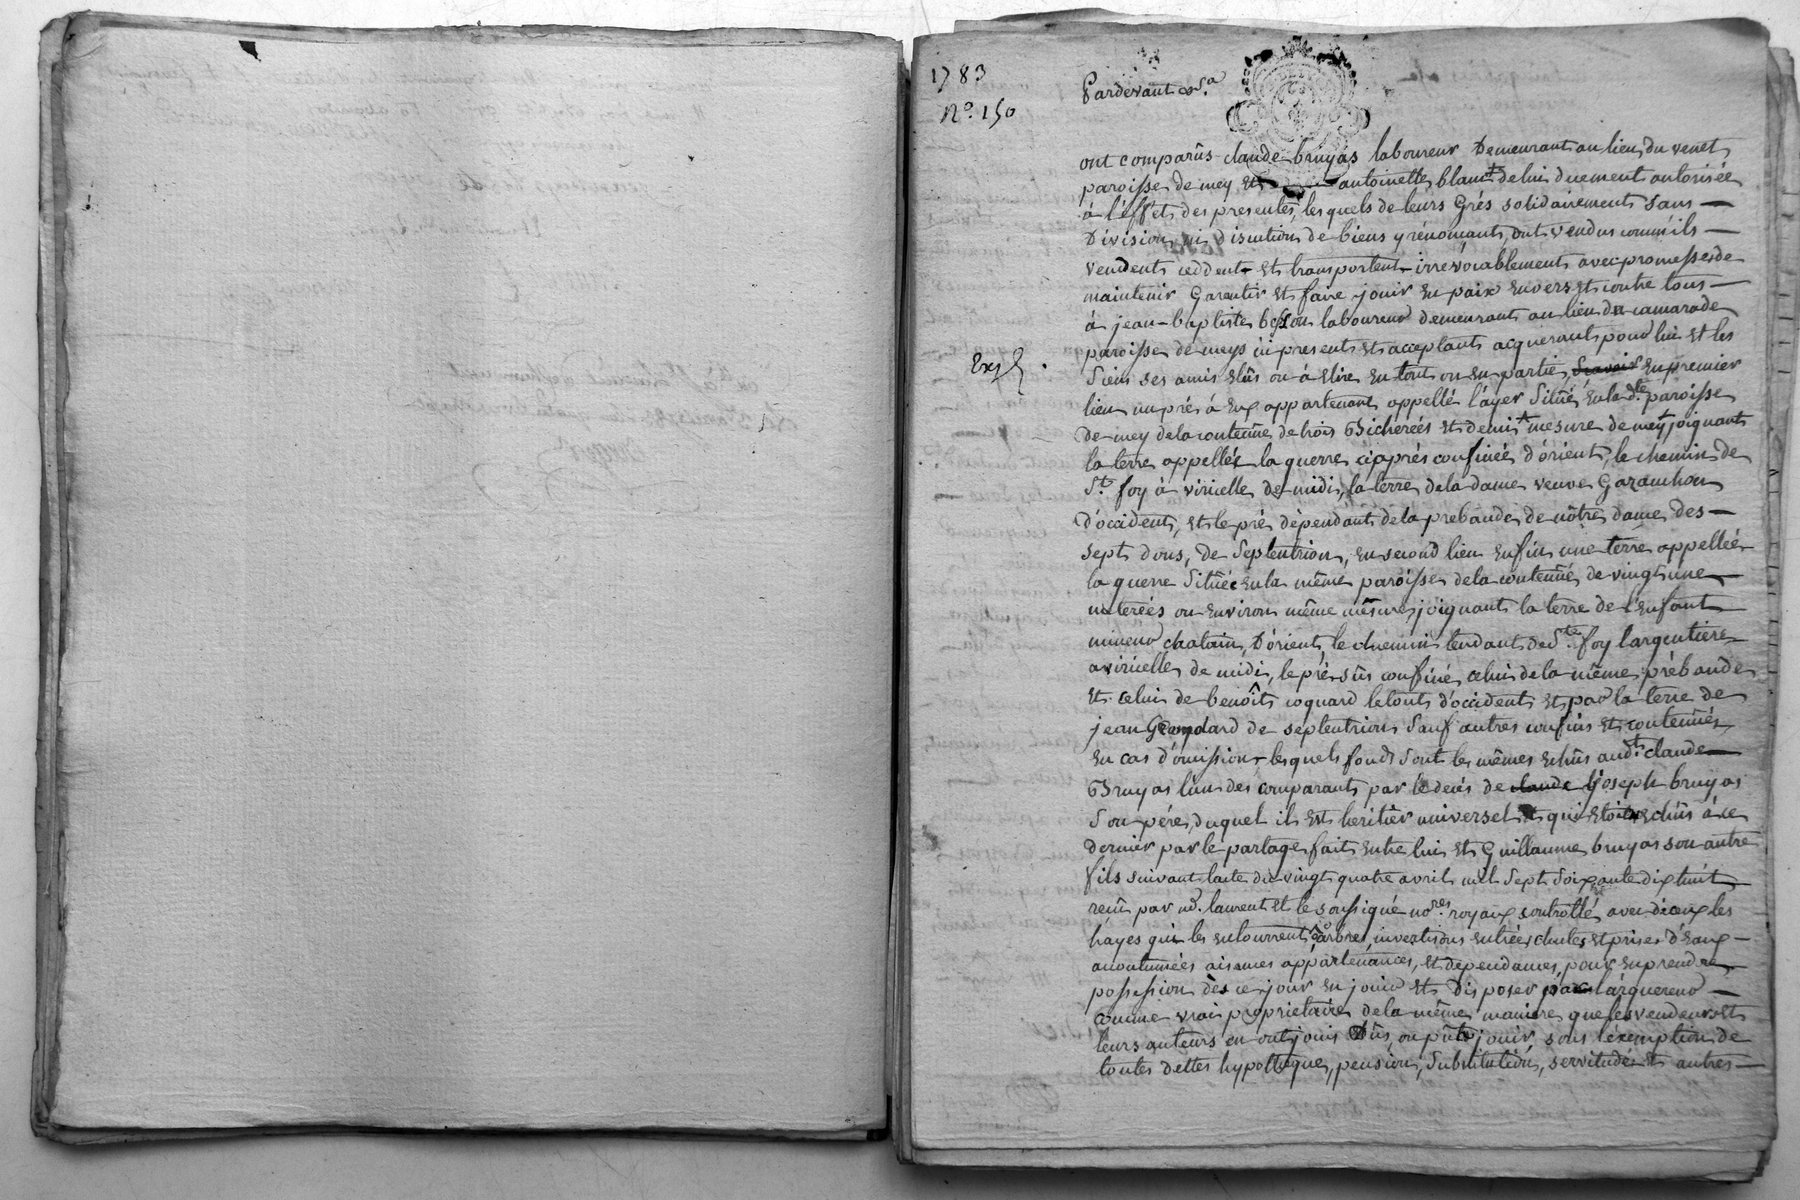 1783
N.o 150
Pardevant &.a
ont comparûs claude bruyas laboureur Demeurant au lieu du venet
paroisse de mey et antoinette blanc de lui duement autorisée
à l'éffet des presentes, lesquels de leurs Grés solidairement sans
Division ni discution de biens y rénonçants, ont vendus comme ils
vendent ceddent et transportent irrevocablement avec promesse de
maintenir Garentir et faire jouir en paix envers et contre tous
à jean-baptiste besson laboureur demeurant au lieu de camarade
paroisse de meys ici present et acceptant acquerant pour lui et les
Exp.
Siens ses amis elûs ou à elire en tout ou en partie, Scavoir en premier
lieu un pré à eux appartenant appellé l'ayer Situé en la d.te paroisse
de mey de la contenüe de trois Bicherées et demi mesure de mey joignant
la terre appellée la guerre ci après confinée d'orient, le chemin de
S.te foy à viricelle de midi, la terre de la dame veuve Garanchon
d'occident, et le pré dépendant de la prebande de nôtre dame des
sept dons, de Septentrion, en second lieu enfin une terre appellée
la guerre Située en la même paroisse de la contenüe de vingt une
meterées ou environ même mésure, joignant la terre de l'enfant
mineur chatain, D'orient, le chemin tendant de S.te foy l'argentiere
a viricelle de midi, le pré sûs confiné, celui de la même prébande
et celui de benoît coquard le tout d'occident et par la terre de
jean de septentrion Sauf autres confins et contenües
en cas d'omission, lesquels fonds sont les mêmes echûs aud.t claude
Bruyas l'un des comparants par le decés de claude joseph bruyas
Son pére, duquel il est heritiér universel et qui etoient echûs à ce
dernier par le partage fait entre lui et Guillaume bruyas son autre
fils suivant l'acte du vingt quatre avril mil Sept Soixante dix huit
reçû par m.e laurent et le soussigné no.res royaux controllé, avec diceux les
hayes qui les entourrent arbres, investisons entrées, chutes et prises d'eaux
acoutumées aisances appartenances, et dependances, pour en prendre
possession dès ce jour en jouir et disposer par l'acquereur
comme vrai proprietaire de la même maniere que les vendeurs et
leurs auteurs en ont jouis Dûs, ou pû jouir, sous l'éxemption de
toutes dettes hypotteque, pension, Substitution, servitudes et autres